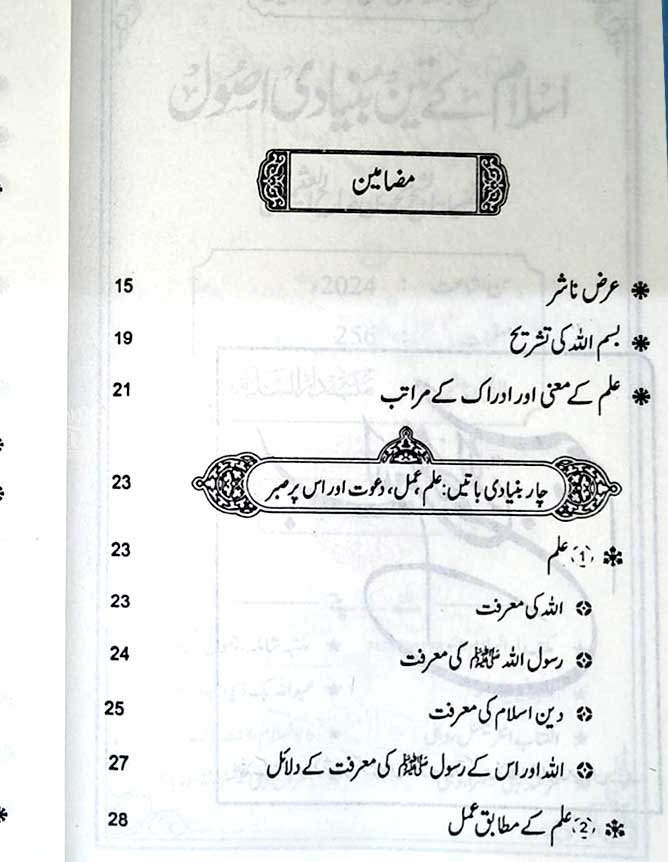 مضامین
عرض ناشر 15
بسم اللہ کی تشریح 19
علم کے معنی اور ادراک کے مراتب 21
چار بنیادی باتیں: علم، عمل، دعوت اور اس پر صبر 23
(1) علم 23
اللہ کی معرفت 23
رسول اللہ ﷺ کی معرفت 24
دین اسلام کی معرفت 25
اللہ اور اس کے رسول ﷺ کی معرفت کے دلائل 27
(2) علم کے مطابق عمل 28